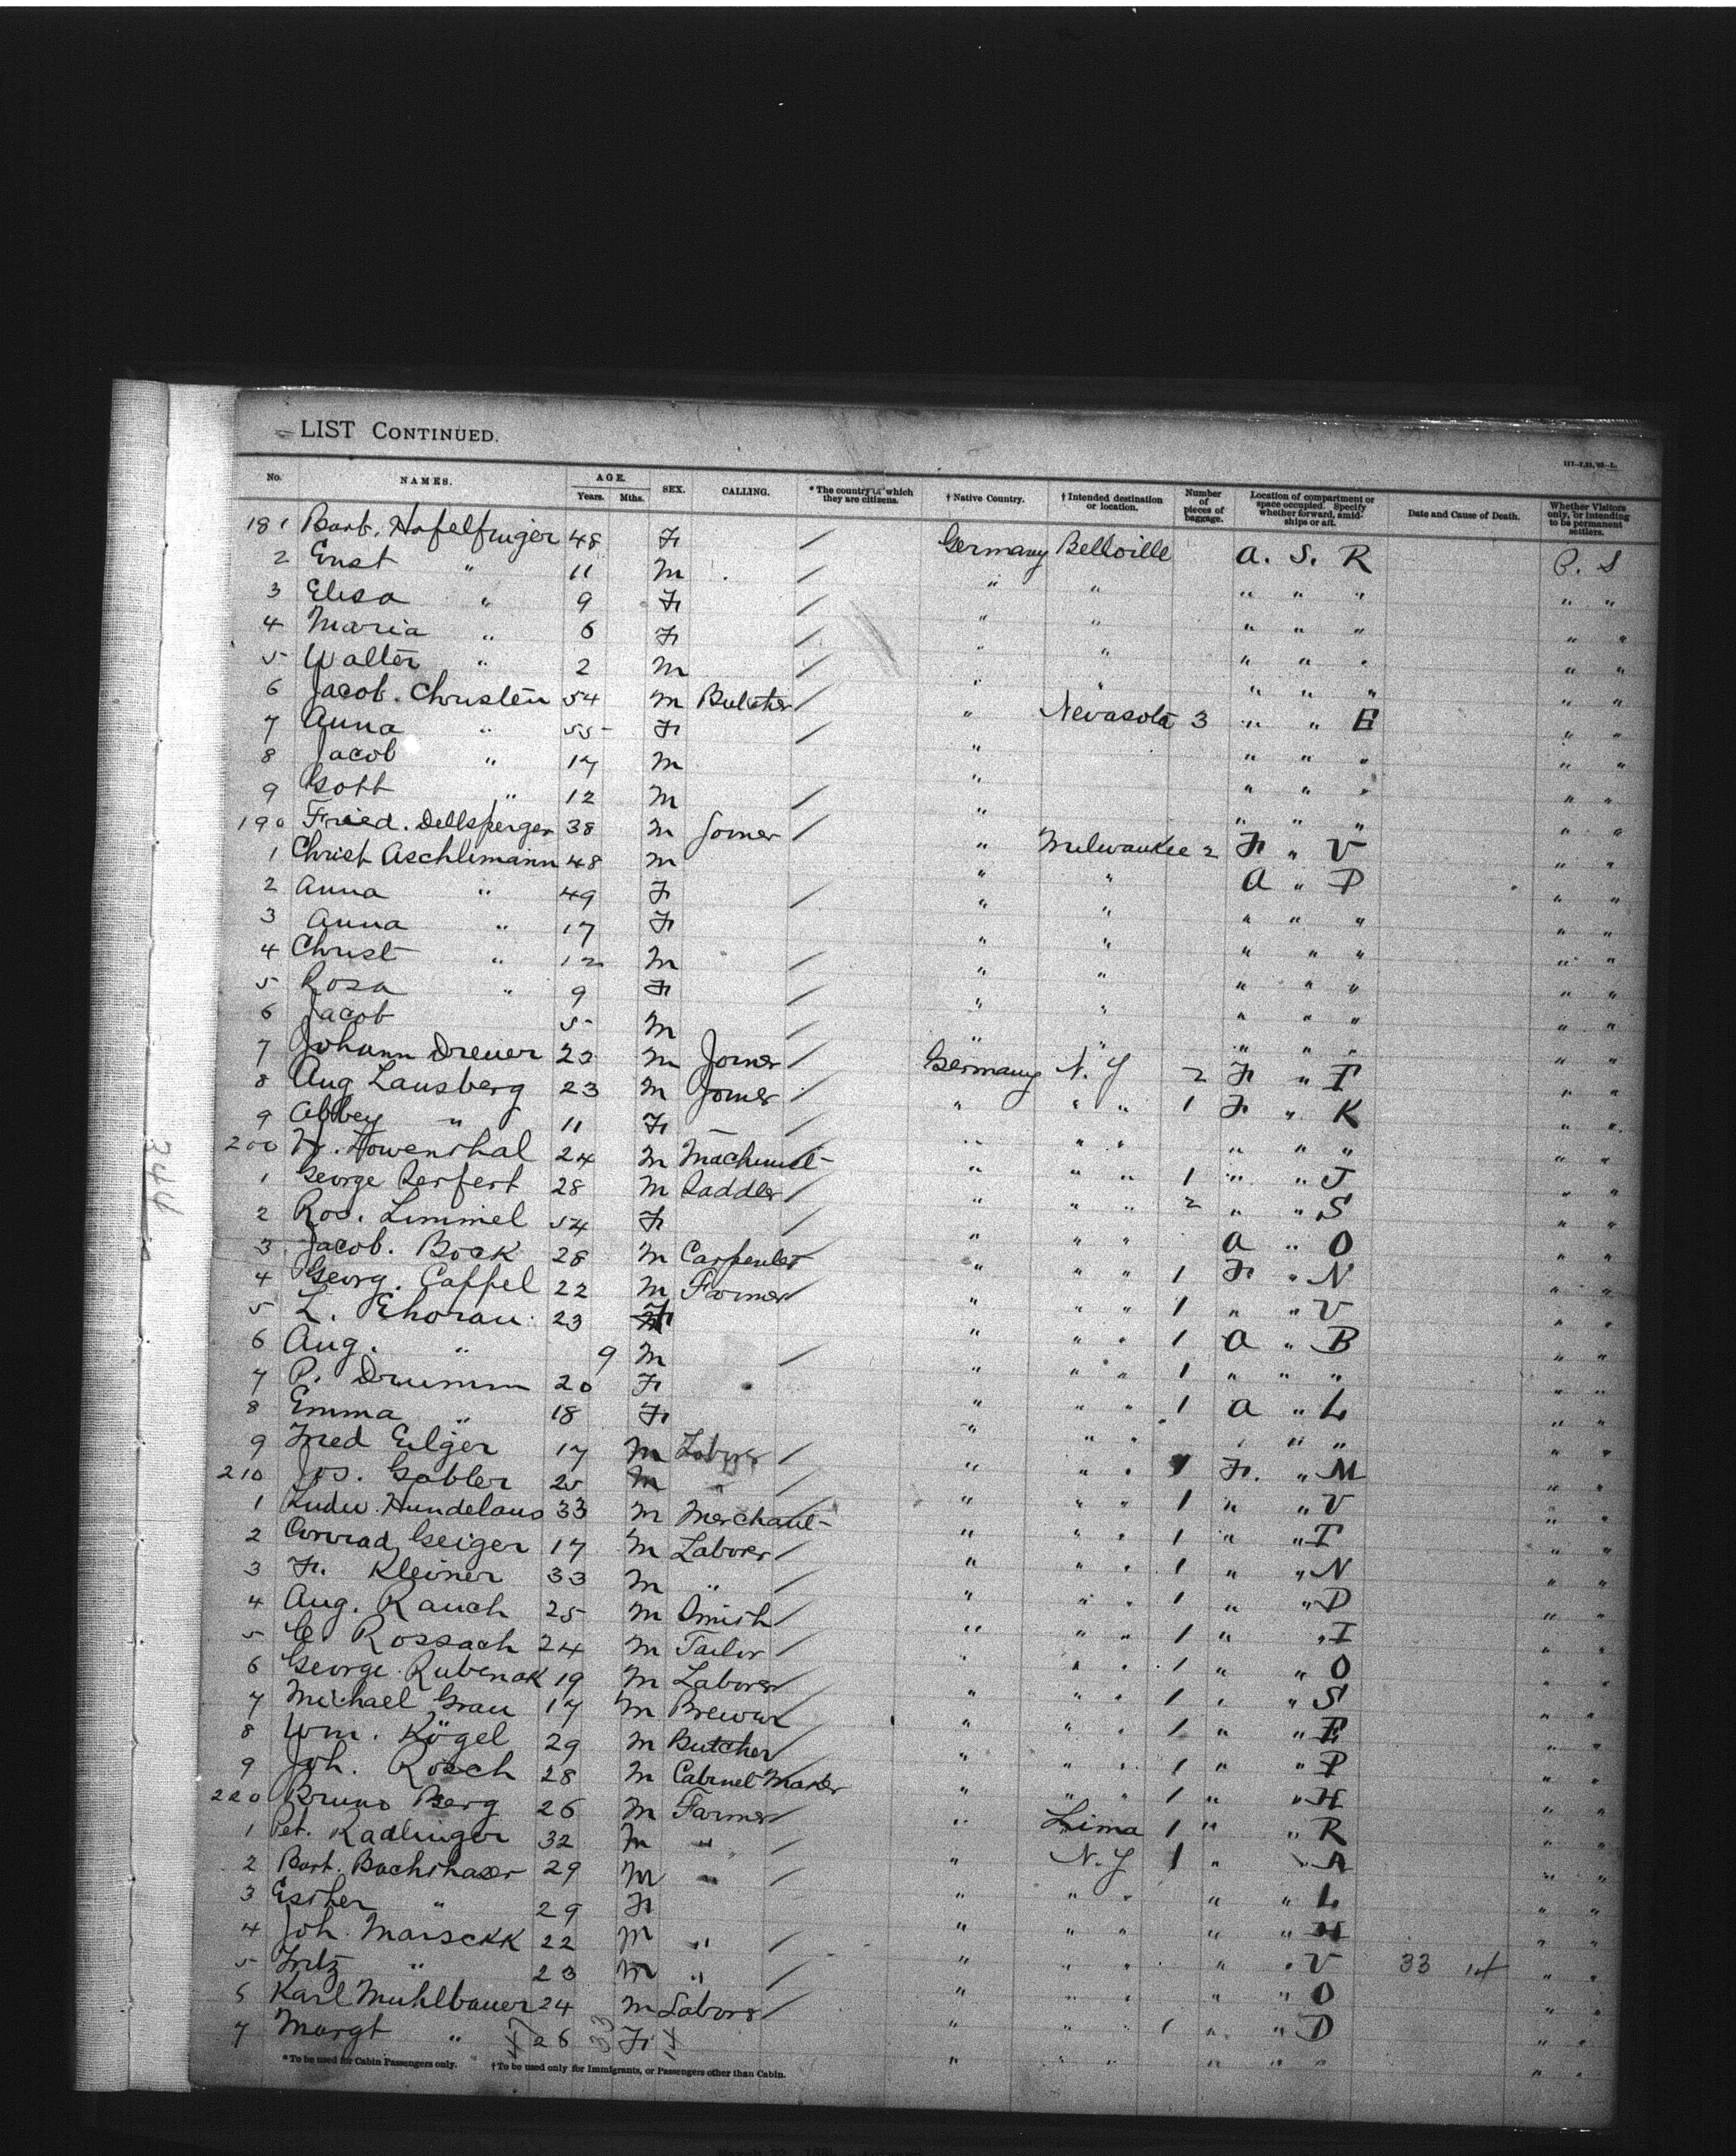 LIST CONTINUED.
No. NAMES. AGE. Years. Mths. SEX. CALLING. * The country of which they are citizens. † Native Country. † Intended destination or location. Number of pieces of baggage. Location of compartment or space occupied. Specify whether forward, amidships or aft. Date and Cause of Death. Whether Visitors only, or intending to be permanent settlers.
181 Barb. Hofelfinger 48 F / Germany Bellville A. S. R P. S
2 Ernst " 11 M / " " " " " " "
3 Elisa " 9 F / " " " " " " "
4 Maria " 6 F / " " " " " " "
5 Walter " 2 M / " " " " " " "
6 Jacob. Christen 54 M Butcher / " Nevasota 3 " " E " "
7 Anna " 55 F / " " " " " "
8 Jacob " 17 M " " " " " "
9 Gott " 12 M / " " " " " "
190 Fried. Dellsperger 38 M Joiner / " Milwaukee 2 F " V " "
1 Christ Aschlimann 48 M " " A " P " "
2 Anna " 49 F / " " " " " " "
3 Anna " 17 F " " " " " " "
4 Christ " 12 M / " " " " " " "
5 Rosa " 9 F / " " " " " " "
6 Jacob 5 M / " " " " " " "
7 Johann Dreuer 23 M Joiner / Germany N. Y 2 F " T " "
8 Aug Lansberg 23 M Joiner / " " " 1 F " K " "
9 Abbey " 11 F — / " " " " " " " "
200 H. Lowenthal 24 M Machinist " " " 1 " " J " "
1 George Serfert 28 M Saddler / " " " 2 " " S " "
2 Ros. Limmel 54 F / " " " A " O " "
3 Jacob. Bock 28 M Carpenter " " " 1 F " N " "
4 Georg. Cappel 22 M Farmer / " " " 1 " " V " "
5 L. Ehorau 23 F " " " 1 A " B " "
6 Aug. " 9 M / " " " 1 " " " " "
7 P. Drumm 20 F " " " 1 A " L " "
8 Emma " 18 F " " " " " " " "
9 Fred Eilger 17 M Labor / " " " 1 F. " M " "
210 Jos. Gabler 25 M " / " " " 1 " " V " "
1 Ludw. Hundelaus 33 M Merchant " " " 1 " " T " "
2 Conrad Geiger 17 M Laborer / " " " 1 " " N " "
3 Fr. Kleiner 33 M " / " " " 1 " " P " "
4 Aug. Rauch 25 M Smith / " " " 1 " " I " "
5 C. Rossach 24 M Tailor / " " " 1 " " O " "
6 George Rubenak 19 M Laborer / " " " 1 " " S " "
7 Michael Grau 17 M Brewer " " " 1 " " E " "
8 Wm. Kögel 29 M Butcher / " " " 1 " " P " "
9 Joh. Rosch 28 M Cabinet Maker " " " 1 " " H " "
220 Bruno Berg 26 M Farmer / " Lima 1 " " R " "
1 Pet. Radlinger 32 M " / " N. Y 1 " " A " "
2 Bart. 29 M " / " " " " " L " "
3 Esther " 29 F " " " " " H " "
4 Joh. Marsckk 22 M " / " " " " " V 33 14 " "
5 Fritz " 23 M " / " " " " " O " "
6 Karl Muhlbauer 24 M Labore / " " " 1 " " D " "
7 Margt " 26 33 F " " " " " " " "
* To be used for Cabin Passengers only. † To be used only for Immigrants, or Passengers other than Cabin.